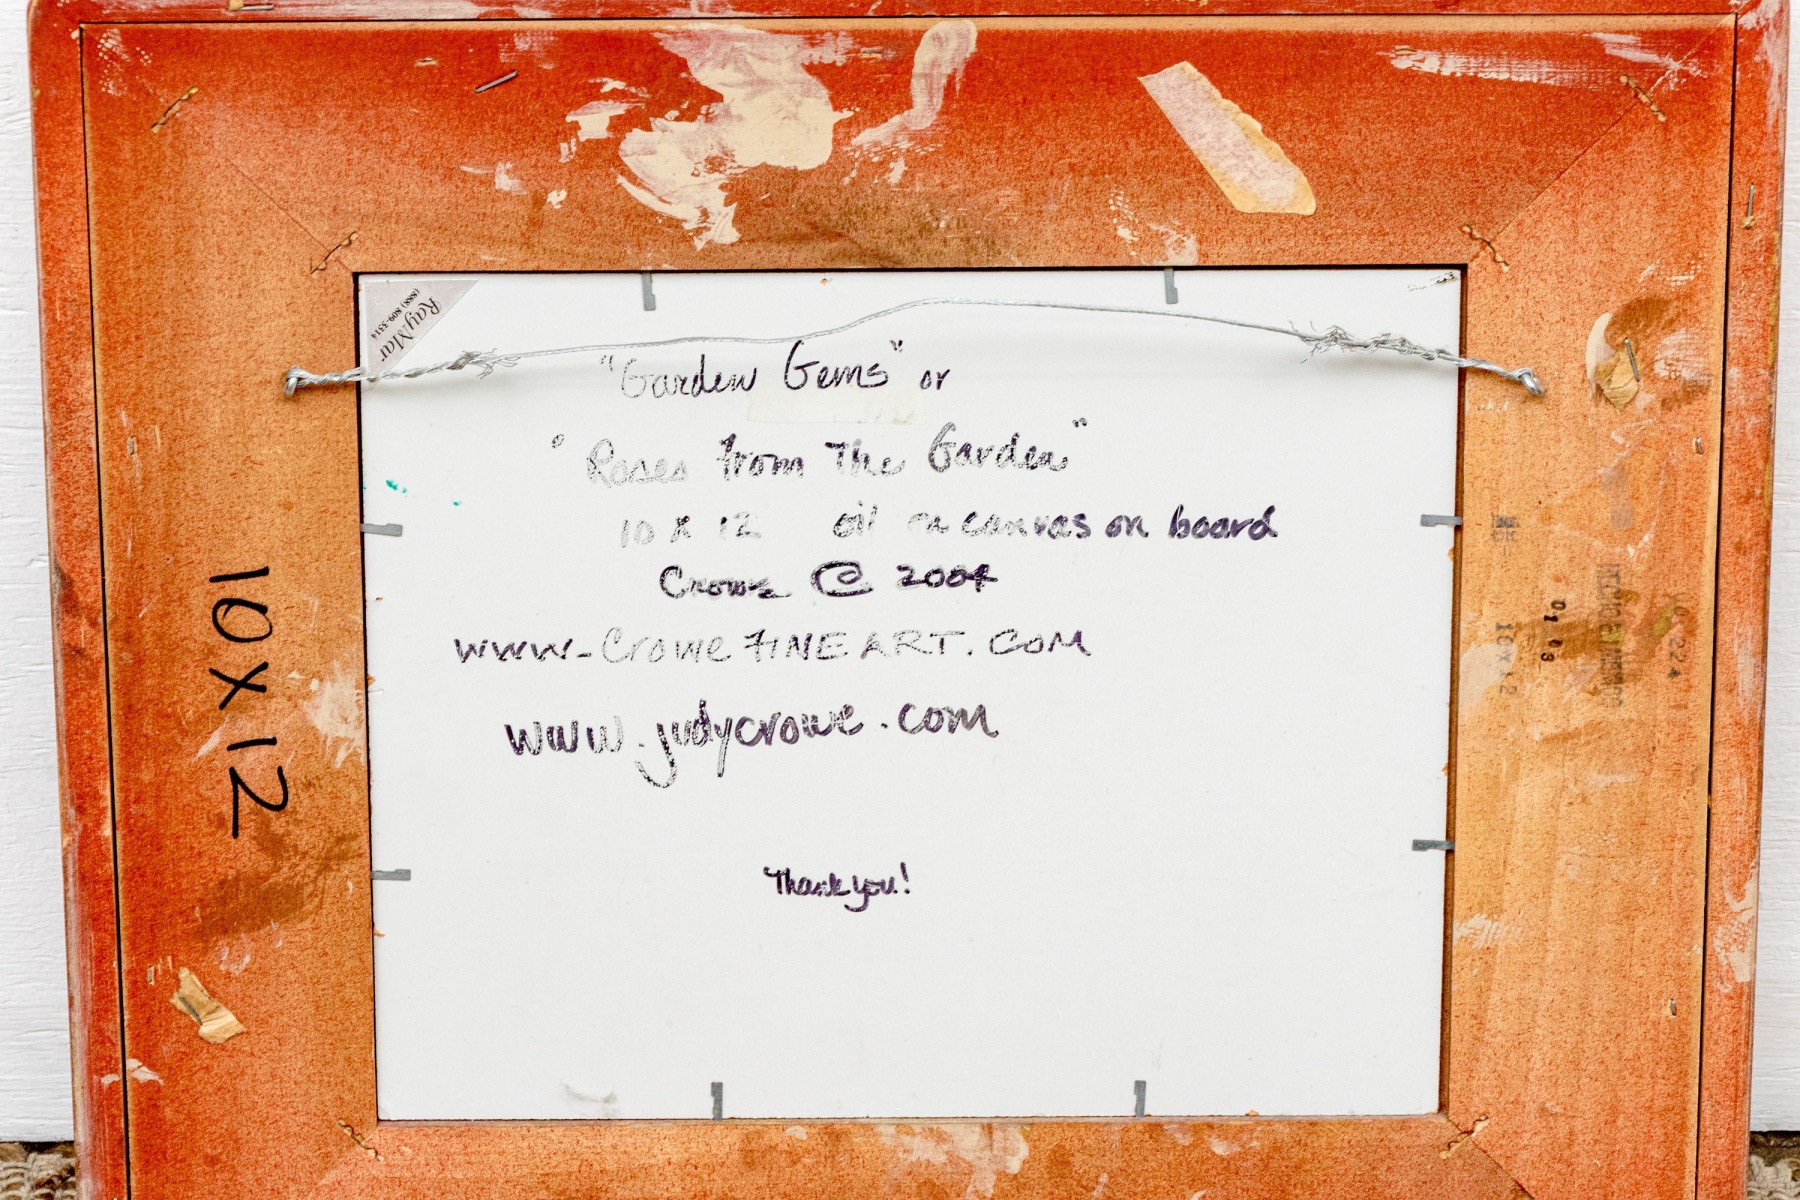 RayMar
(888) 809-3314
"Garden Gems" or
"Roses from The Garden"
10 x 12 oil on canvas on board
Crowe © 2004
www.CroweFINEART.COM
www.judycrowe.com
Thank you!
10 X 12
10 X 12